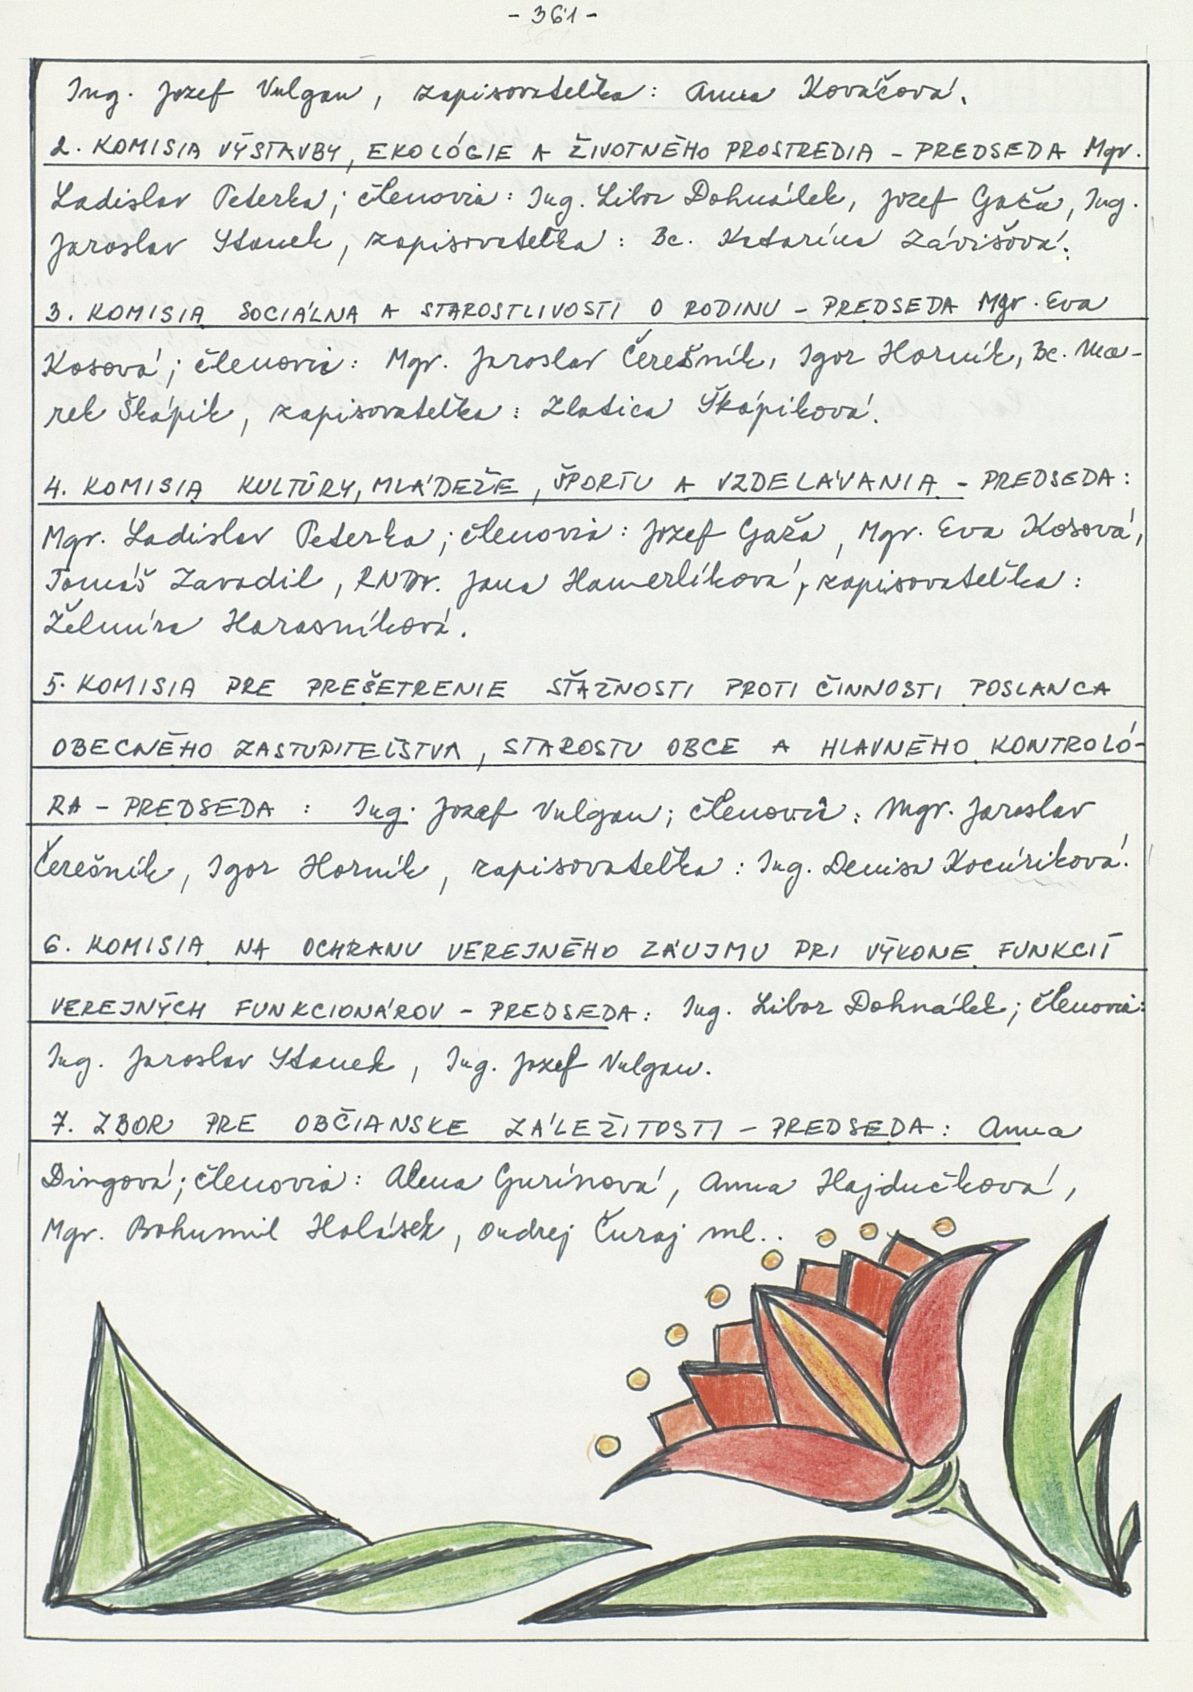 - 361 -
Ing. Jozef Vulgan, zapisovateľka: Anna Kováčová.
2. KOMISIA VÝSTAVBY, EKOLÓGIE A ŽIVOTNÉHO PROSTREDIA - PREDSEDA Mgr.
Ladislav Peterka; členovia: Ing. Libor Dohnálek, Jozef Gaža, Ing.
Jaroslav Stanek, zapisovateľka: Bc. Katarína Závišová.
3. KOMISIA SOCIÁLNA A STAROSTLIVOSTI O RODINU - PREDSEDA Mgr. Eva
Kosová; členovia: Mgr. Jaroslav Čerešník, Igor Horník, Bc. Ma-
rek Škápik, zapisovateľka: Zlatica Škápiková.
4. KOMISIA KULTÚRY, MLÁDEŽE, ŠPORTU A VZDELÁVANIA - PREDSEDA:
Mgr. Ladislav Peterka; členovia: Jozef Gaža, Mgr. Eva Kosová,
Tomáš Zavadil, RNDr. Jana Hamerlíková, zapisovateľka:
Želmíra Harasníková.
5. KOMISIA PRE PREŠETRENIE SŤAŽNOSTI PROTI ČINNOSTI POSLANCA
OBECNÉHO ZASTUPITEĽSTVA, STAROSTU OBCE A HLAVNÉHO KONTROLÓ-
RA - PREDSEDA: Ing. Jozef Vulgan; členovia: Mgr. Jaroslav
Čerešník, Igor Horník, zapisovateľka: Ing. Denisa Kocúriková.
6. KOMISIA NA OCHRANU VEREJNÉHO ZÁUJMU PRI VÝKONE FUNKCIÍ
VEREJNÝCH FUNKCIONÁROV - PREDSEDA: Ing. Libor Dohnálek; členovia:
Ing. Jaroslav Stanek, Ing. Jozef Vulgan.
7. ZBOR PRE OBČIANSKE ZÁLEŽITOSTI - PREDSEDA: Anna
Dingová; členovia: Alena Gurínová, Anna Hajdučková,
Mgr. Bohumil Holásek, Ondrej Čuraj ml..